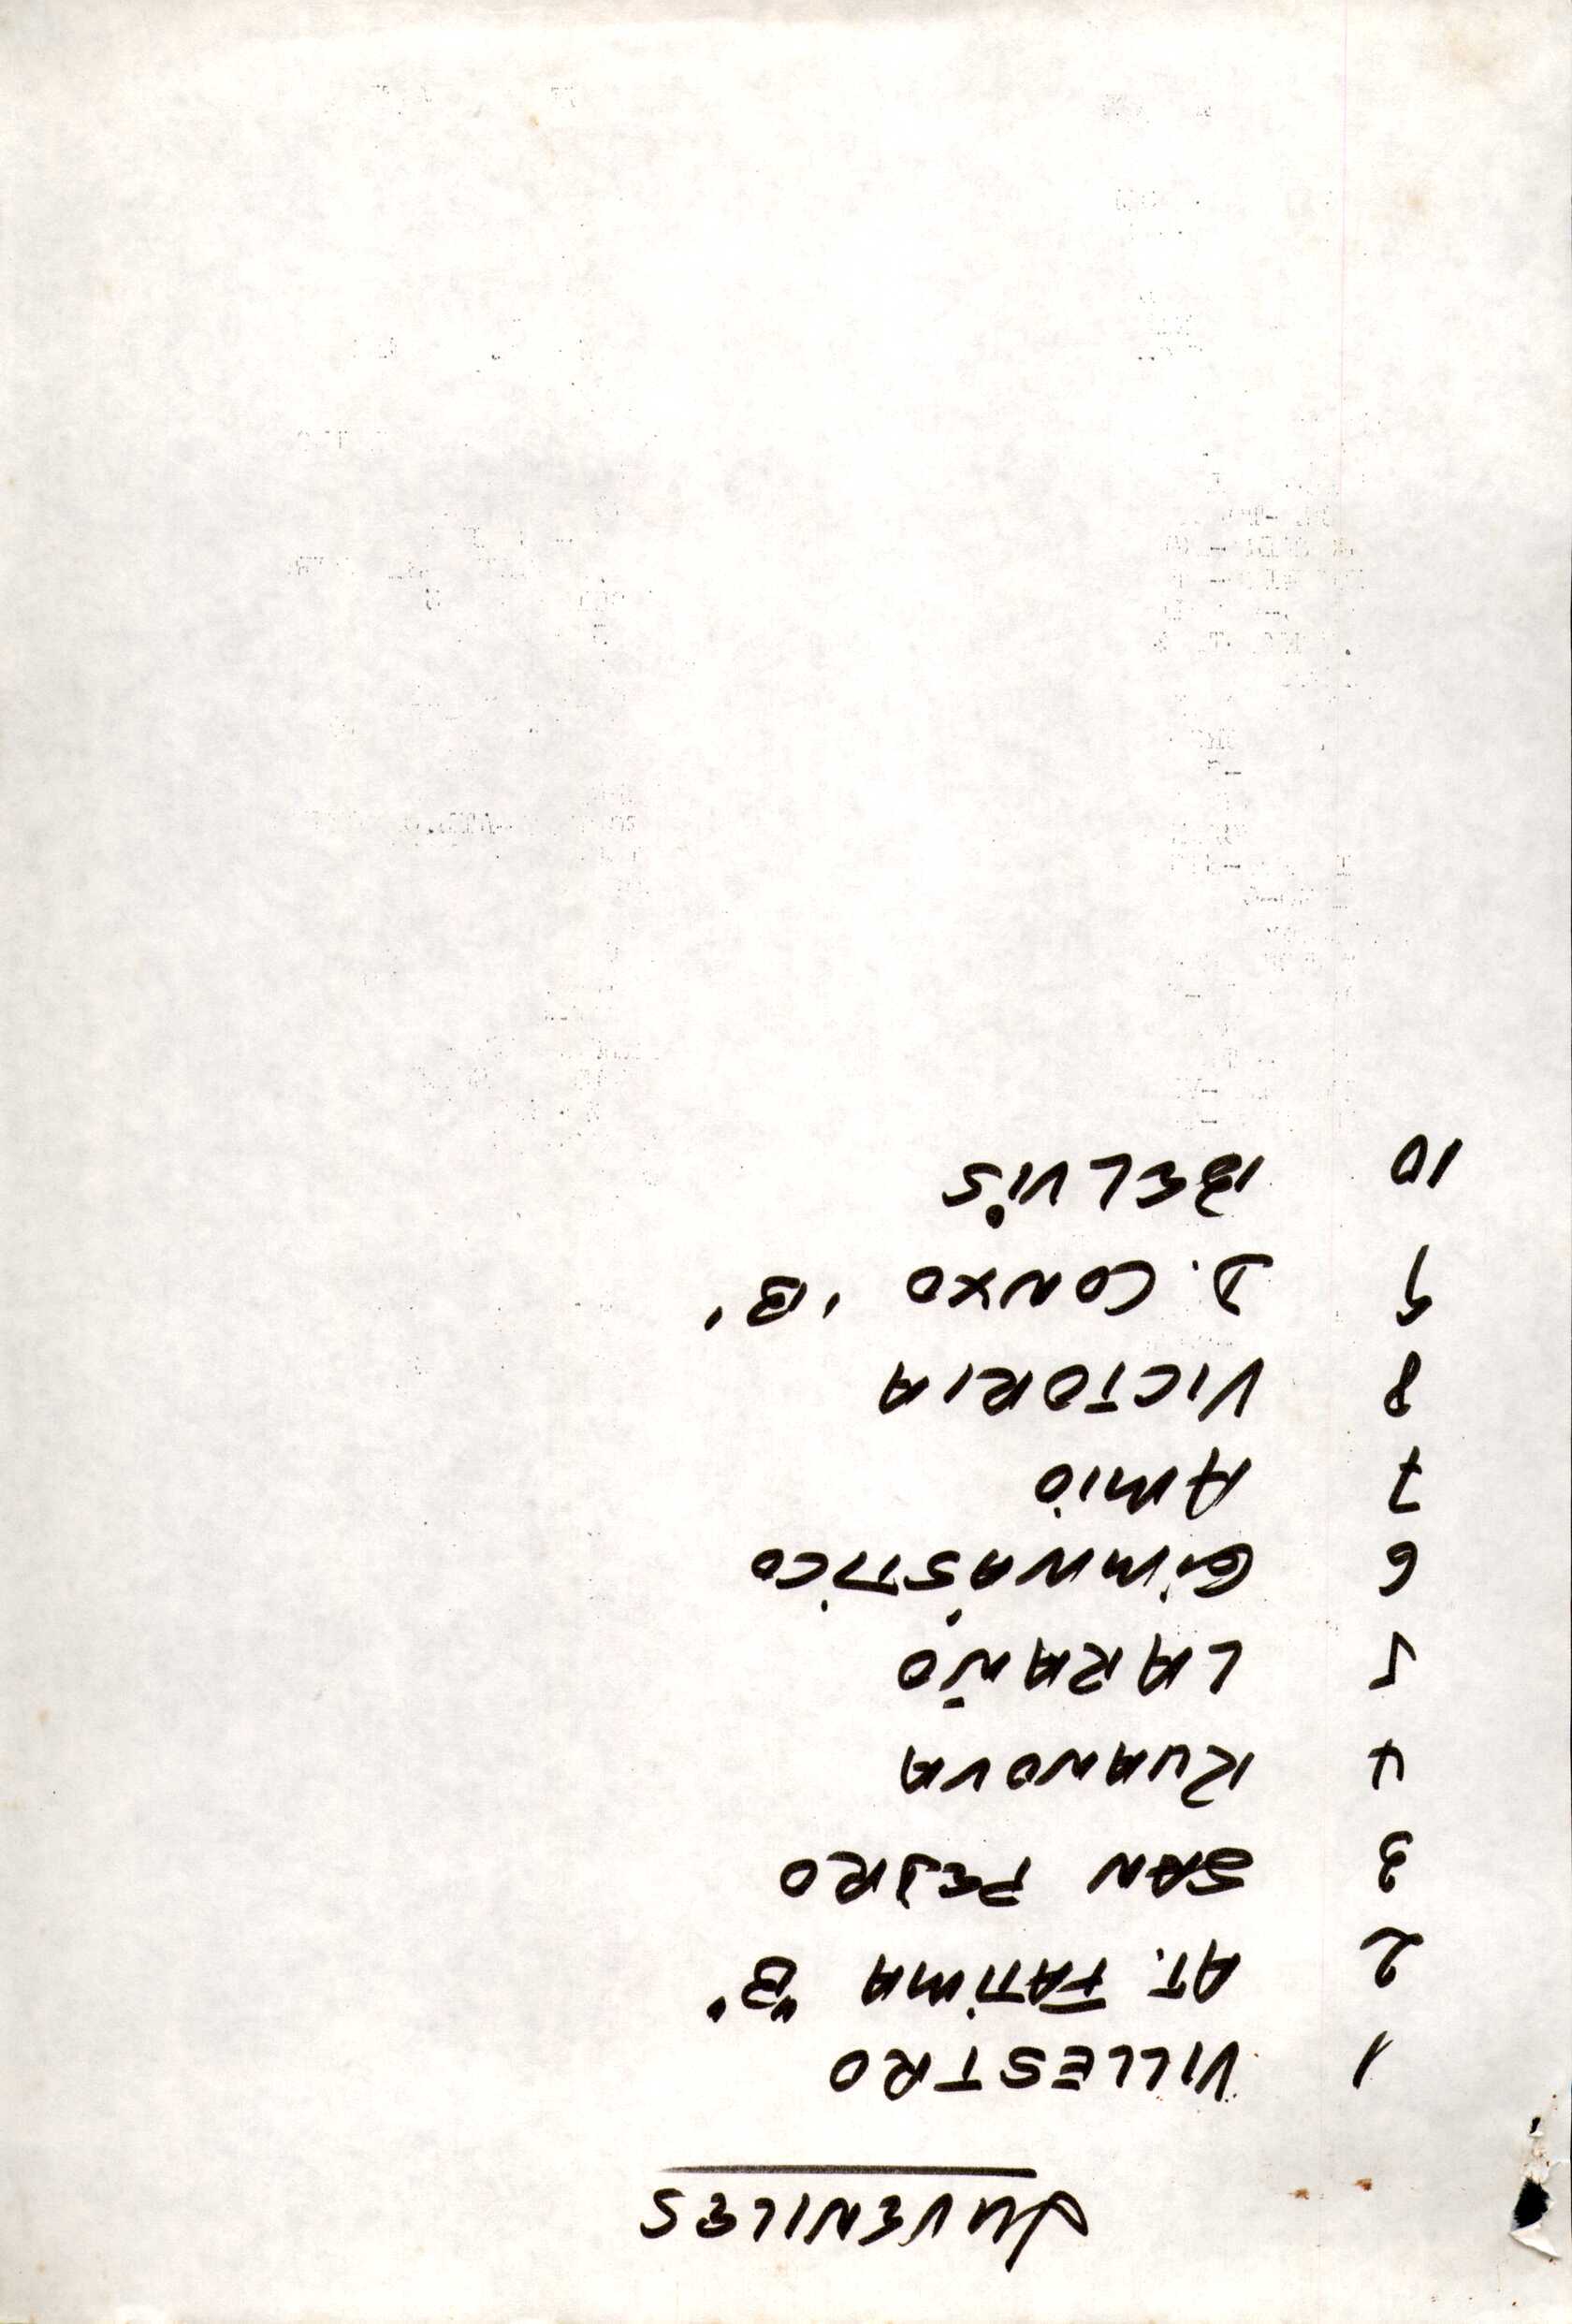 JUVENILES
1 VILLESTRO
2 AT. FATIMA "B"
3 SAN PEDRO
4 RUANOVA
5 LARAÑO
6 GIMNÁSTICO
7 AMIO
8 VICTORIA
9 D. CONXO 'B'
10 BELVÍS